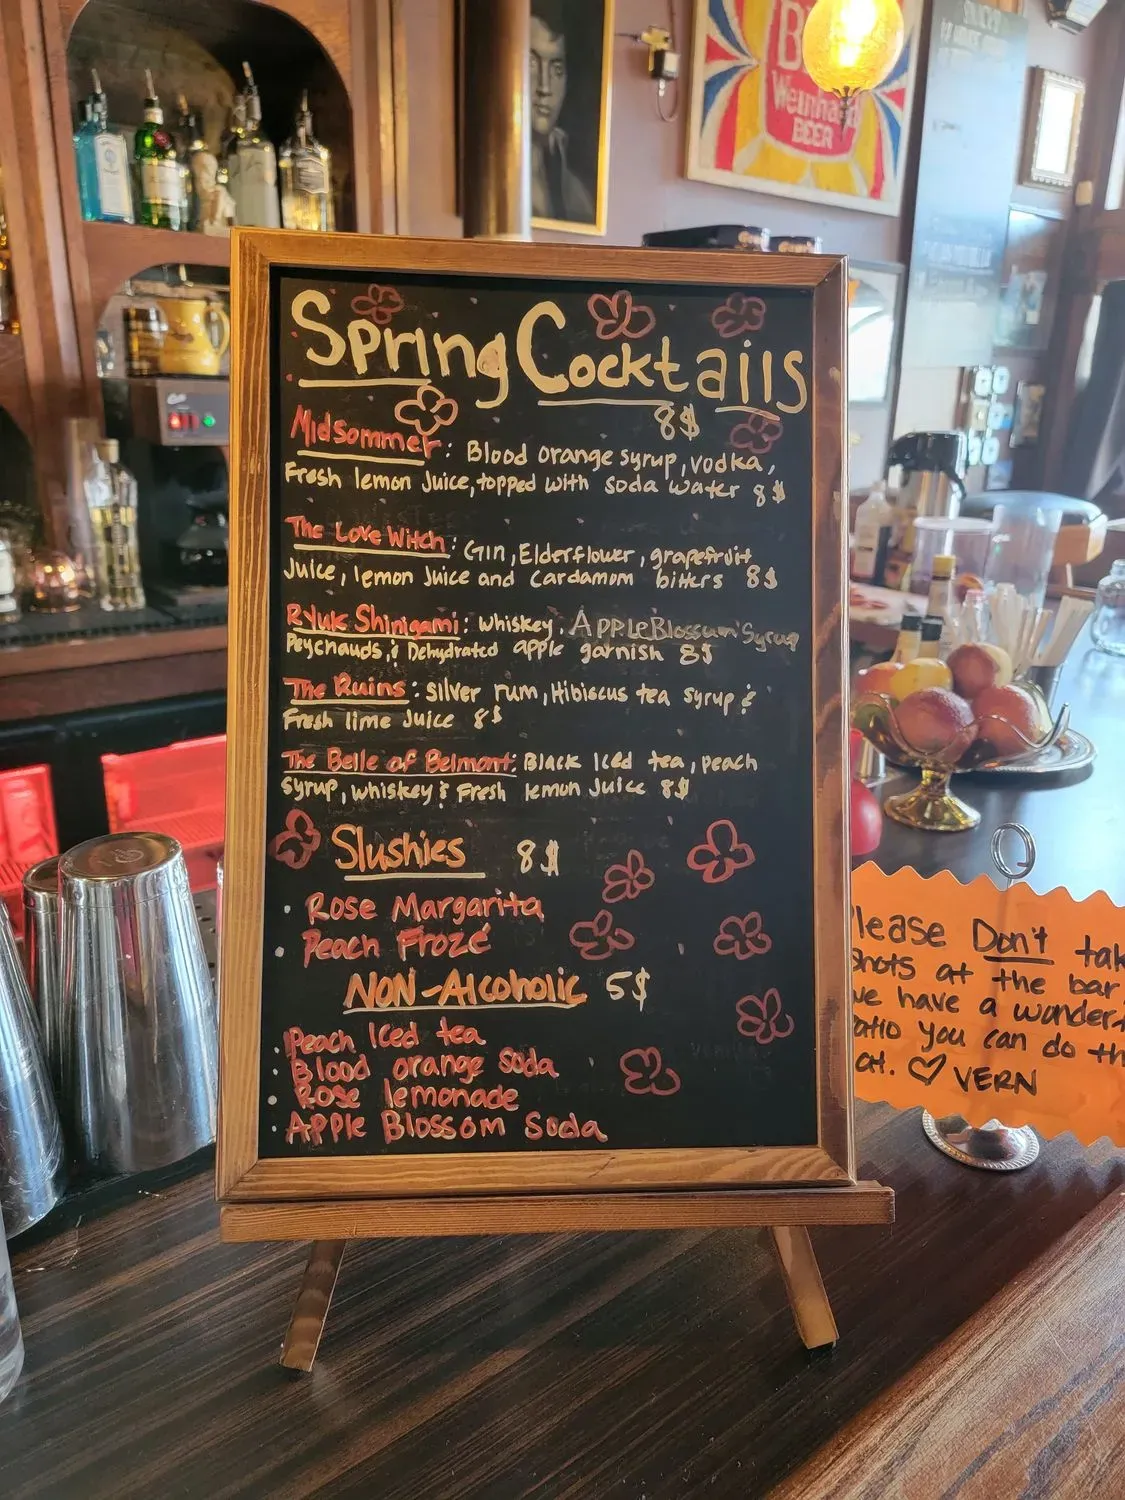 Spring Cocktails
8$
Midsommer: Blood orange syrup, vodka,
Fresh lemon Juice, topped with soda water 8$
The Love Witch: Gin, Elderflower, grapefruit
Juice, lemon Juice and Cardamom bitters 8$
Ryuk Shinigami: whiskey, Apple Blossum Syrup
Peychauds, & Dehydrated apple garnish 8$
The Ruins: silver rum, Hibiscus tea syrup &
Fresh lime Juice 8$
The Belle of Belmont: Black Iced tea, peach
syrup, whiskey & Fresh lemon Juice 8$
Slushies 8$
· Rose Margarita
· Peach Frozé
NON-Alcoholic 5$
· Peach Iced tea
· Blood orange soda
· Rose lemonade
· Apple Blossom Soda
Weinhard
BEER
lease Don't tak
shots at the bar
we have a wonderf
atio you can do th
at. ♡ VERN